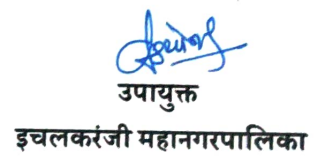 उपायुक्त
इचलकरंजी महानगरपालिका